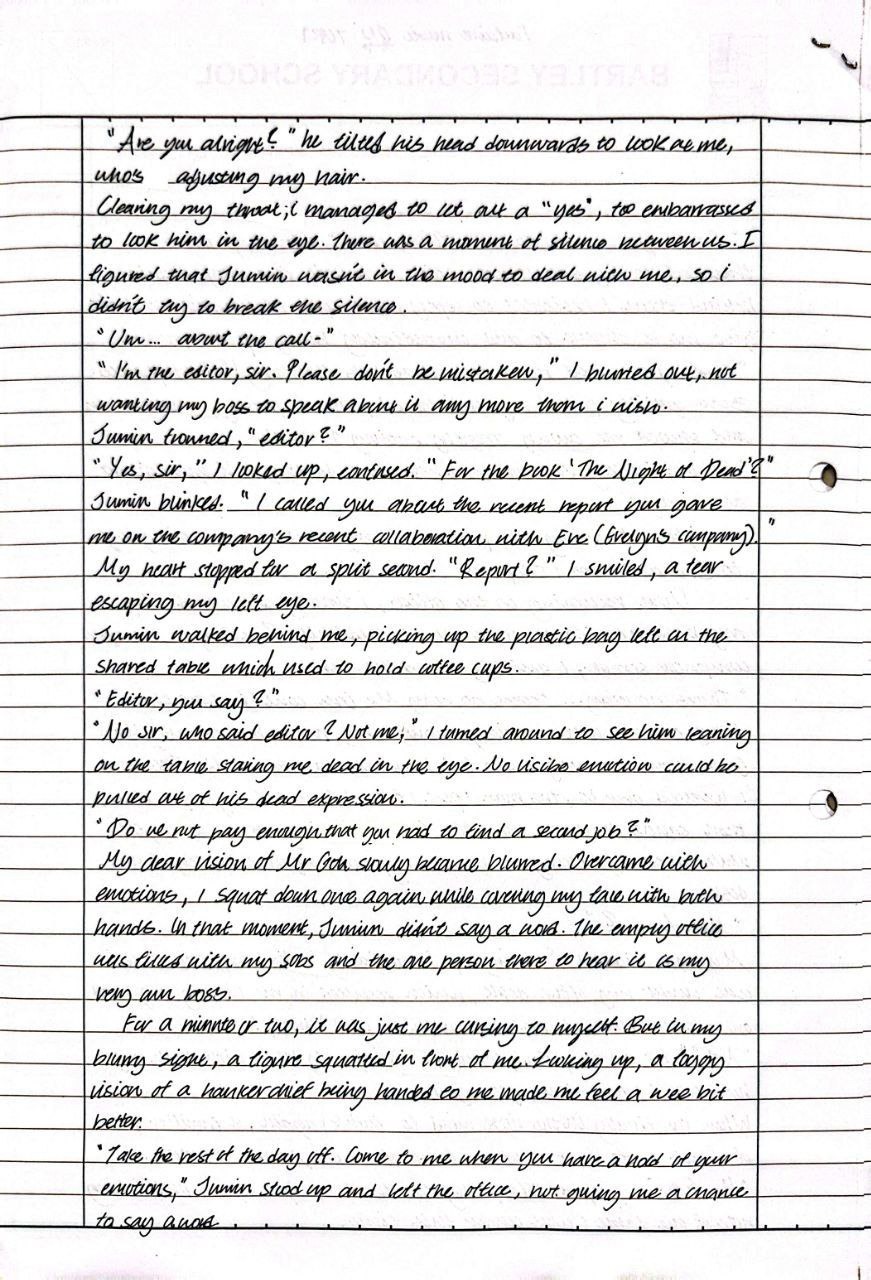 "Are you alright?" he tilted his head downwards to look at me,
who's adjusting my hair.
Clearing my throat, I managed to let out a "yes", too embarrassed
to look him in the eye. There was a moment of silence between us. I
figured that Jumin wasn't in the mood to deal with me, so i
didn't try to break the silence.
"Um... about the call-"
"I'm the editor, sir. Please don't be mistaken," I blurted out, not
wanting my boss to speak about it any more than i wish.
Jumin frowned, "editor?"
"Yes, sir," I looked up, confused. "For the book 'The Night of Dead'?"
Jumin blinked. "I called you about the recent report you gave
me on the company's recent collaboration with Eve (Evelyn's company)."
My heart stopped for a split second. "Report?" I smiled, a tear
escaping my left eye.
Jumin walked behind me, picking up the plastic bag left on the
shared table which used to hold coffee cups.
"Editor, you say?"
"No sir, who said editor? Not me," I turned around to see him leaning
on the table staring me dead in the eye. No visible emotion could be
pulled out of his dead expression.
"Do we not pay enough that you had to find a second job?"
My clear vision of Mr Goh slowly became blurred. Overcame with
emotions, I squat down once again while covering my face with both
hands. In that moment, Jumin didn't say a word. The empty office
was filled with my sobs and the one person there to hear it is my
very own boss.
For a minute or two, it was just me cursing to myself. But in my
blurry sight, a figure squatted in front of me. Looking up, a foggy
vision of a hankerchief being handed to me made me feel a wee bit
better.
"Take the rest of the day off. Come to me when you have a hold of your
emotions," Jumin stood up and left the office, not giving me a chance
to say a word
BARTLEY SECONDARY SCHOOL